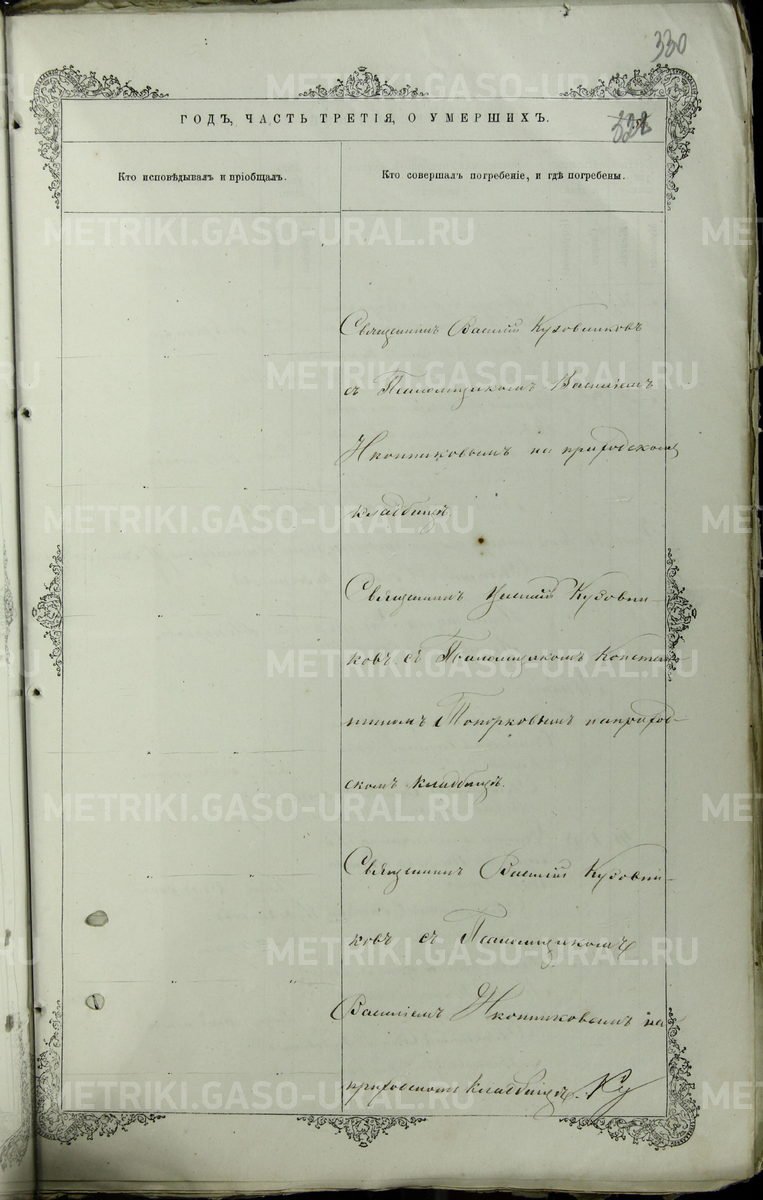 330
ГОДЪ, ЧАСТЬ ТРЕТІЯ, О УМЕРШИХЪ.
Кто исповѣдывалъ и пріобщалъ.
Кто совершалъ погребеніе, и гдѣ погребены.
Священникъ Василій Кузовниковъ
съ Псаломщикомъ Василіемъ
Иконниковымъ на приходскомъ
кладбищѣ.
Священникъ Василій Кузовни-
ковъ съ Псаломщикомъ Констан-
тиномъ Топорковымъ на приход-
скомъ кладбищѣ.
Священникъ Василій Кузовни-
ковъ съ Псаломщикомъ
Василіемъ Иконниковымъ на
приходскомъ кладбищѣ. Ку
METRIKI.GASO-URAL.RU